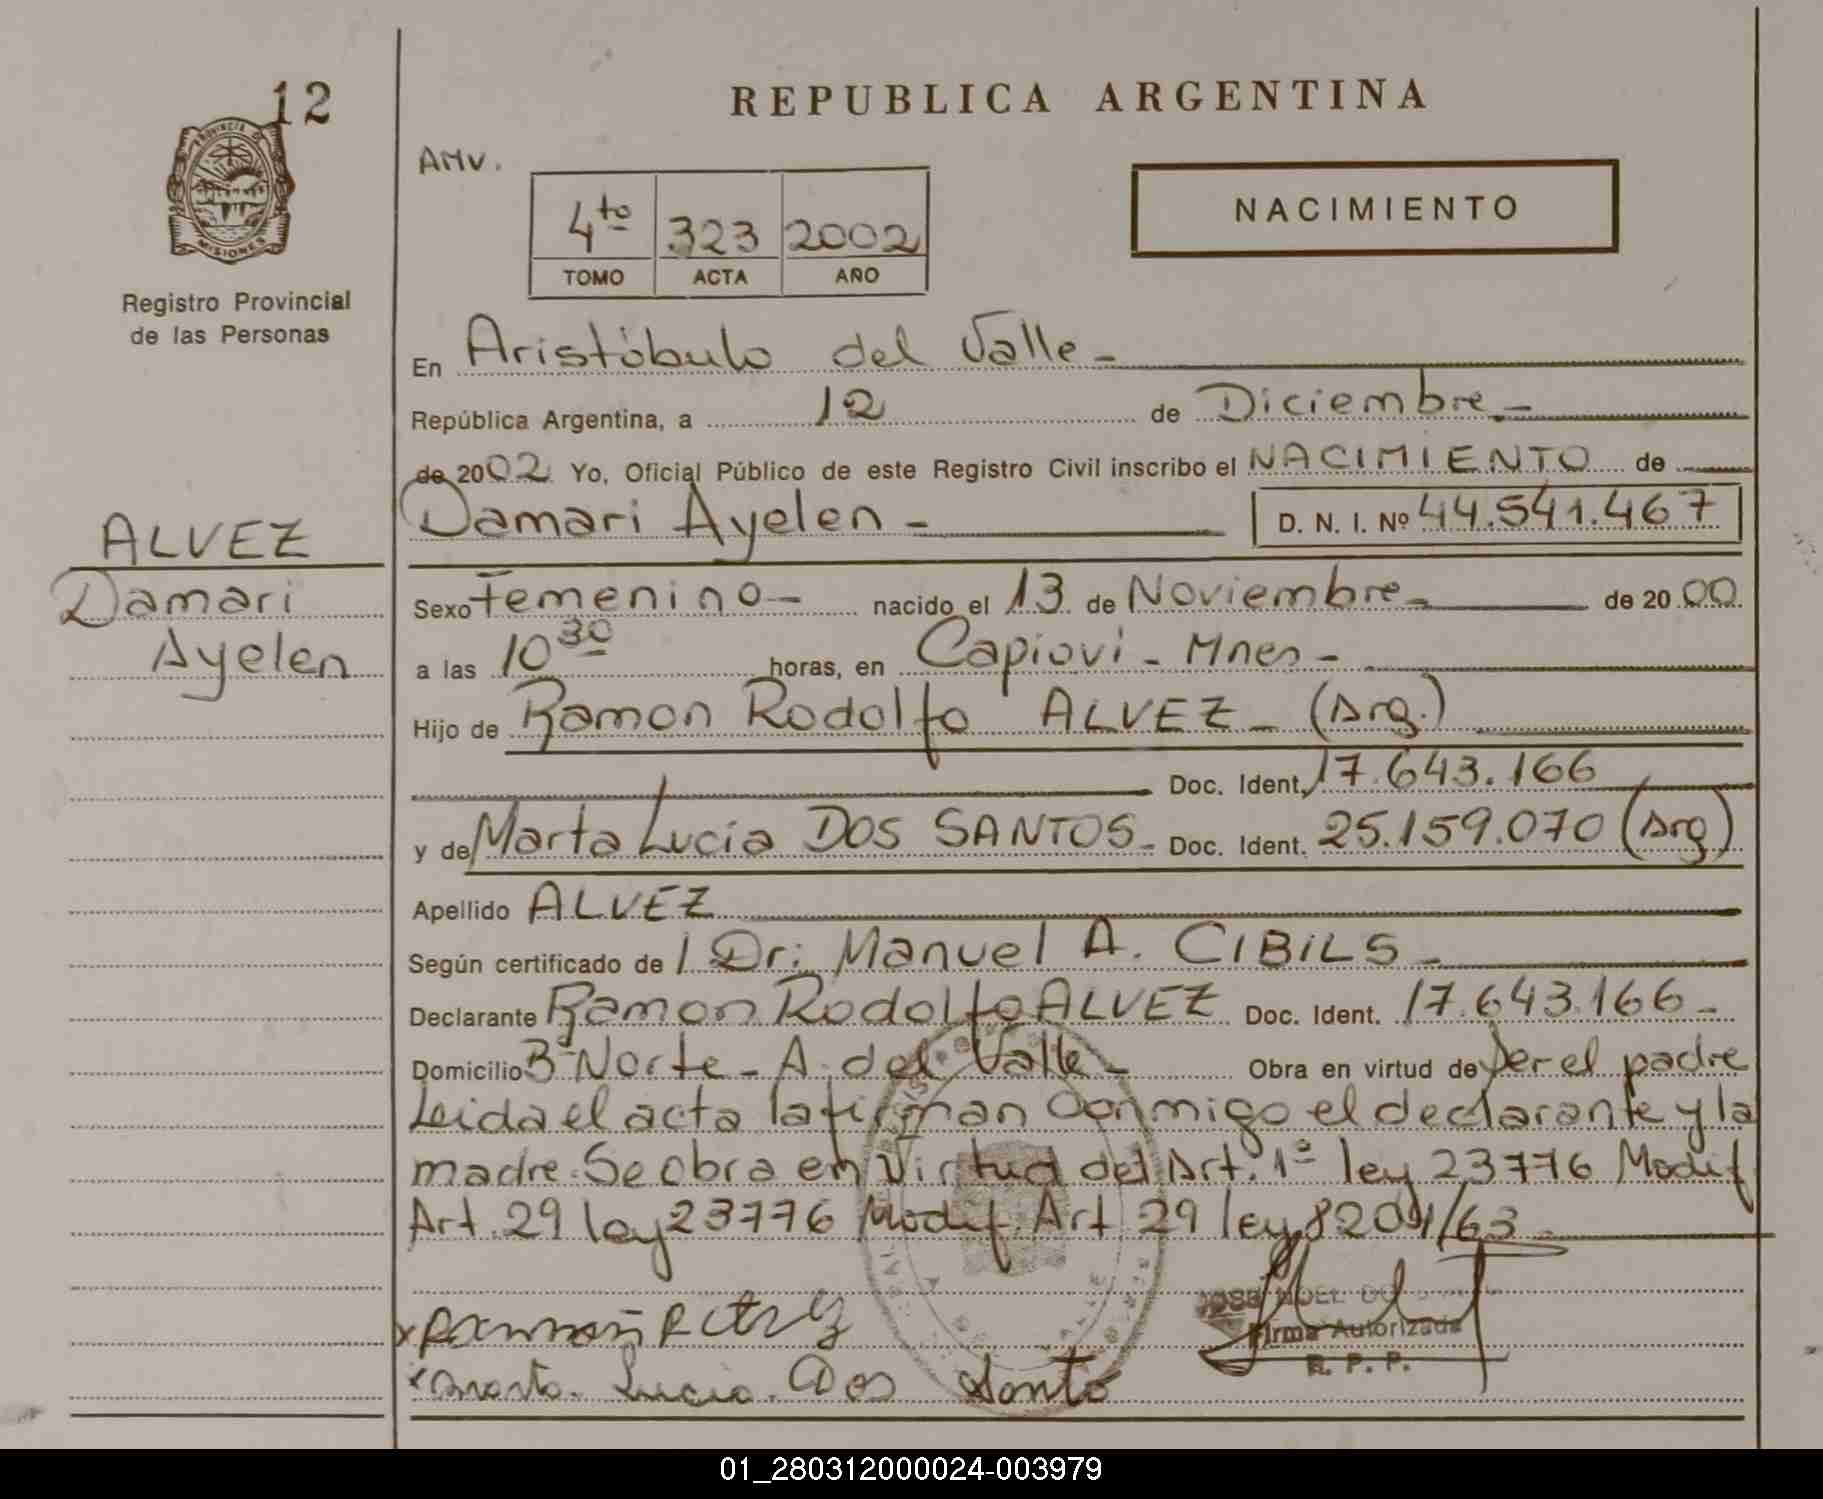 12
REPUBLICA ARGENTINA
PROVINCIA DE
MISIONES
AMV.
NACIMIENTO
4to 323 2002
TOMO ACTA AÑO
Registro Provincial
de las Personas
En Aristóbulo del Valle -
República Argentina, a 12 de Diciembre -
de 2002 Yo, Oficial Público de este Registro Civil inscribo el NACIMIENTO de
Damari Ayelen - D. N. I. Nº 44.541.467
ALVEZ
Damari
Ayelen
Sexo Femenino - nacido el 13 de Noviembre - de 2000
a las 10 30 horas, en Capiovi - Mnes -
Hijo de Ramon Rodolfo ALVEZ - (Arg.)
Doc. Ident. 17.643.166
y de Marta Lucia DOS SANTOS - Doc. Ident. 25.159.070 (Arg)
Apellido ALVEZ
Según certificado de / Dr: Manuel A. CIBILS -
Declarante Ramon Rodolfo ALVEZ Doc. Ident. 17.643.166 -
Domicilio Bº Norte - A. del Valle - Obra en virtud de ser el padre
Leida el acta la firman conmigo el declarante y la
madre. Se obra en virtud del Art. 1º ley 23776 Modif
Art. 29 ley 23776 Modif. Art 29 ley 8204/63 -
JOSE NOEL
x Ramon R
Firma Autorizada
R. P. P.
x Marta. Lucia. Dos Santo
01_280312000024-003979